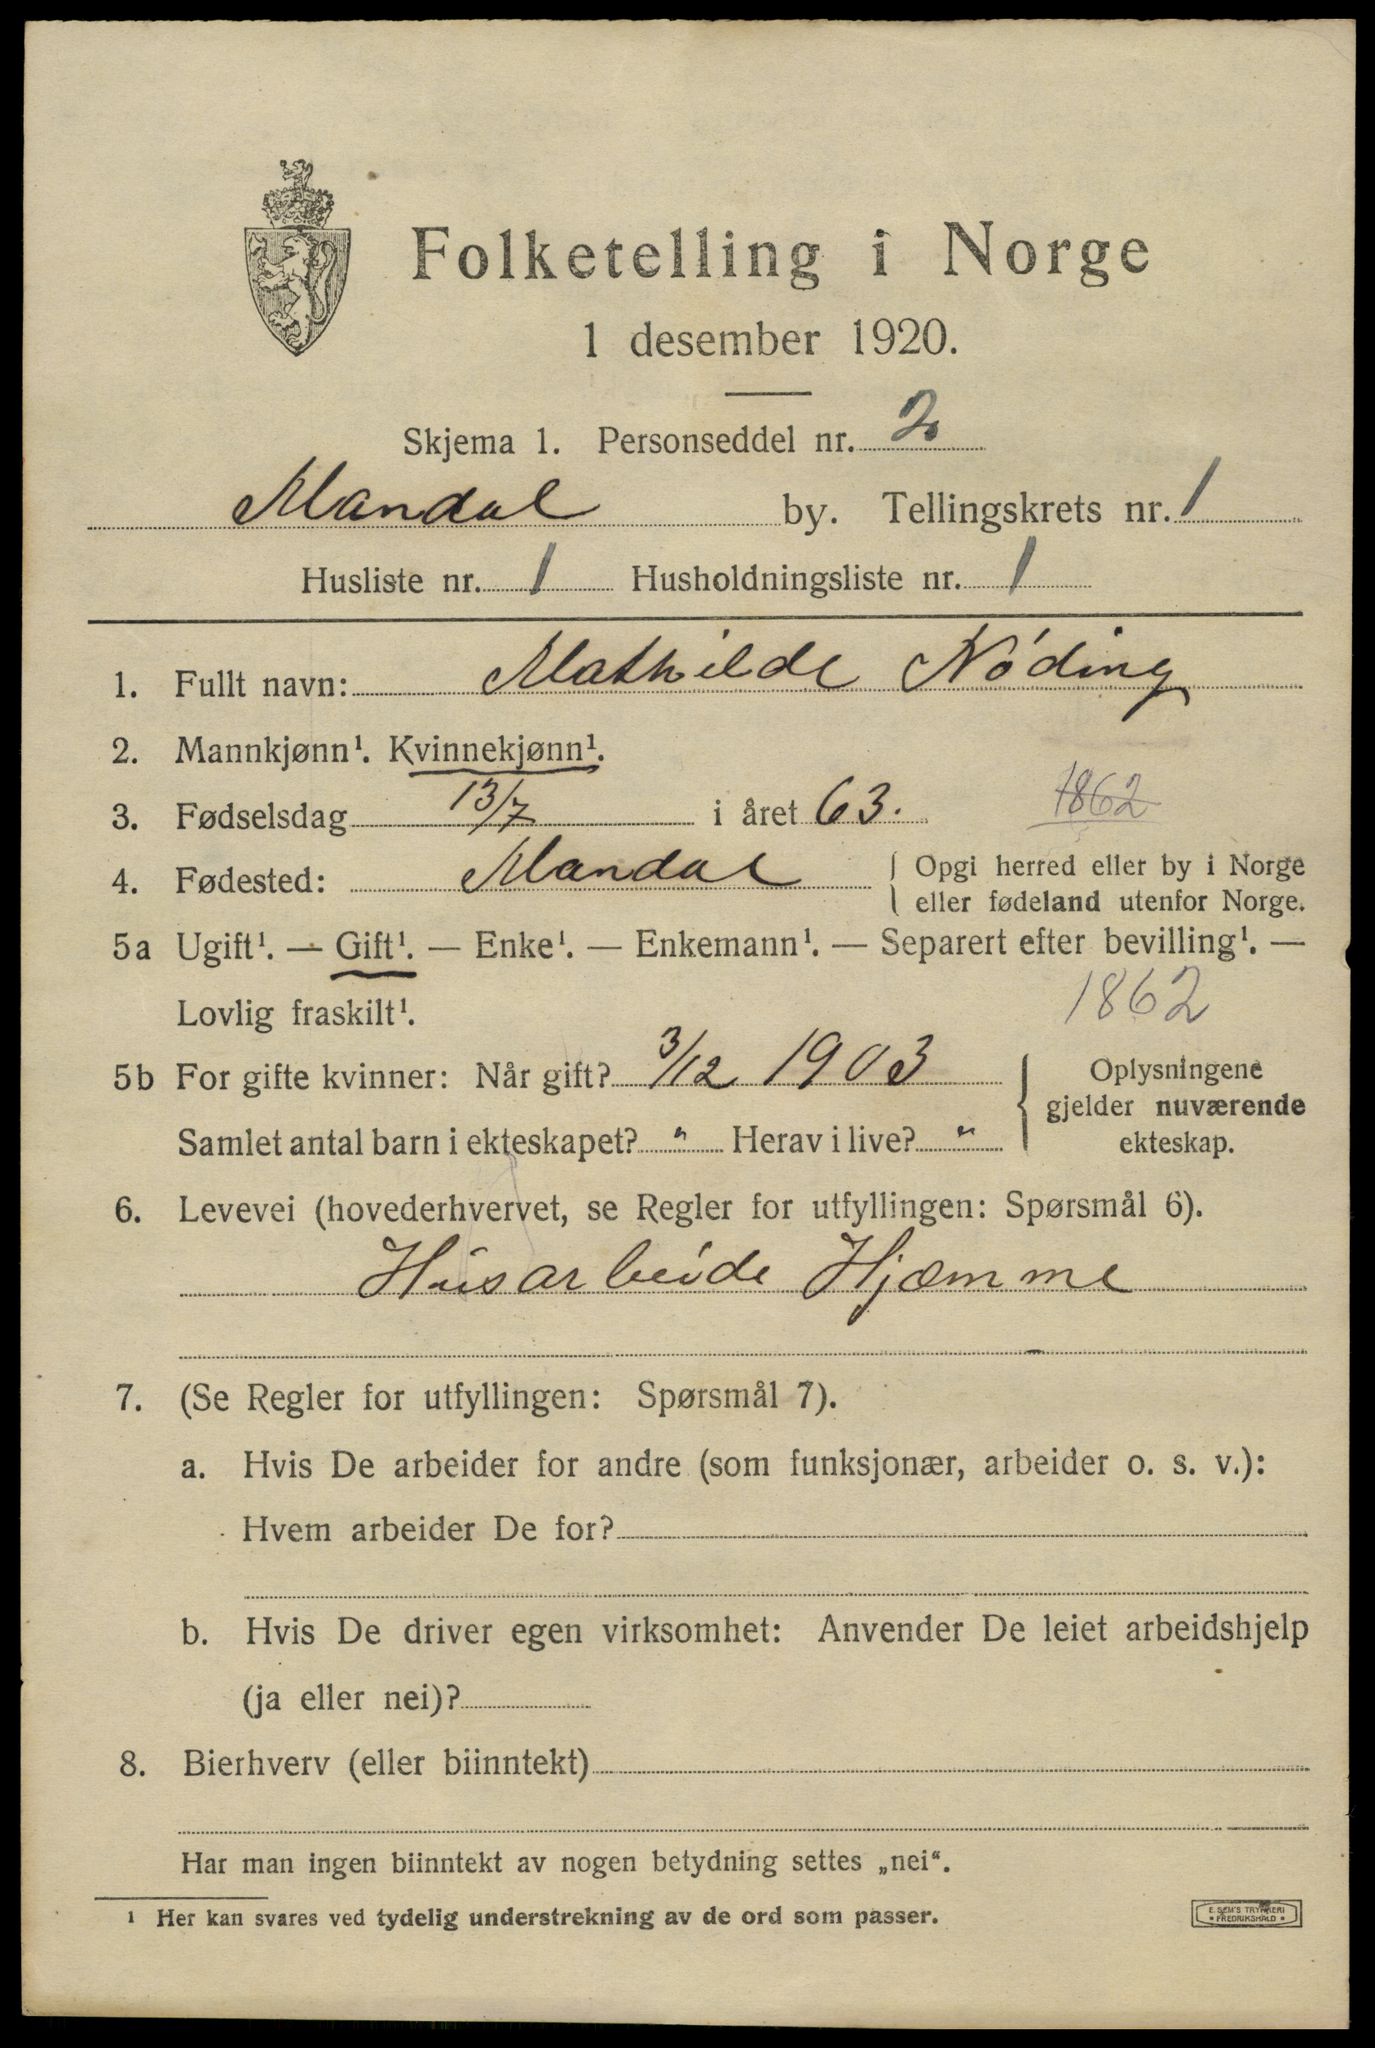 Folketelling i Norge
1 desember 1920.
Skjema 1. Personseddel nr. 2
Mandal by. Tellingskrets nr. 1
Husliste nr. 1 Husholdningsliste nr. 1
1. Fullt navn: Mathilde Nóding
2. Mannkjønn¹. Kvinnekjønn¹.
3. Fødselsdag 13/7 i året 63. 1862
4. Fødested: Mandal { Opgi herred eller by i Norge
eller fødeland utenfor Norge.
5a Ugift¹. — Gift¹. — Enke¹. — Enkemann¹. — Separert efter bevilling¹. —
Lovlig fraskilt¹. 1862
5b For gifte kvinner: Når gift? 3/12 1903
Samlet antal barn i ekteskapet? " Herav i live? "
{ Oplysningene
gjelder nuværende
ekteskap.
6. Levevei (hovederhvervet, se Regler for utfyllingen: Spørsmål 6).
Husarbeide Hjæmme
7. (Se Regler for utfyllingen: Spørsmål 7).
a. Hvis De arbeider for andre (som funksjonær, arbeider o. s. v.):
Hvem arbeider De for?
b. Hvis De driver egen virksomhet: Anvender De leiet arbeidshjelp
(ja eller nei)?
8. Bierhverv (eller biinntekt)
Har man ingen biinntekt av nogen betydning settes „nei“.
¹ Her kan svares ved tydelig understrekning av de ord som passer.
E. SEM'S TRYKKERI
* FREDRIKSHALD *